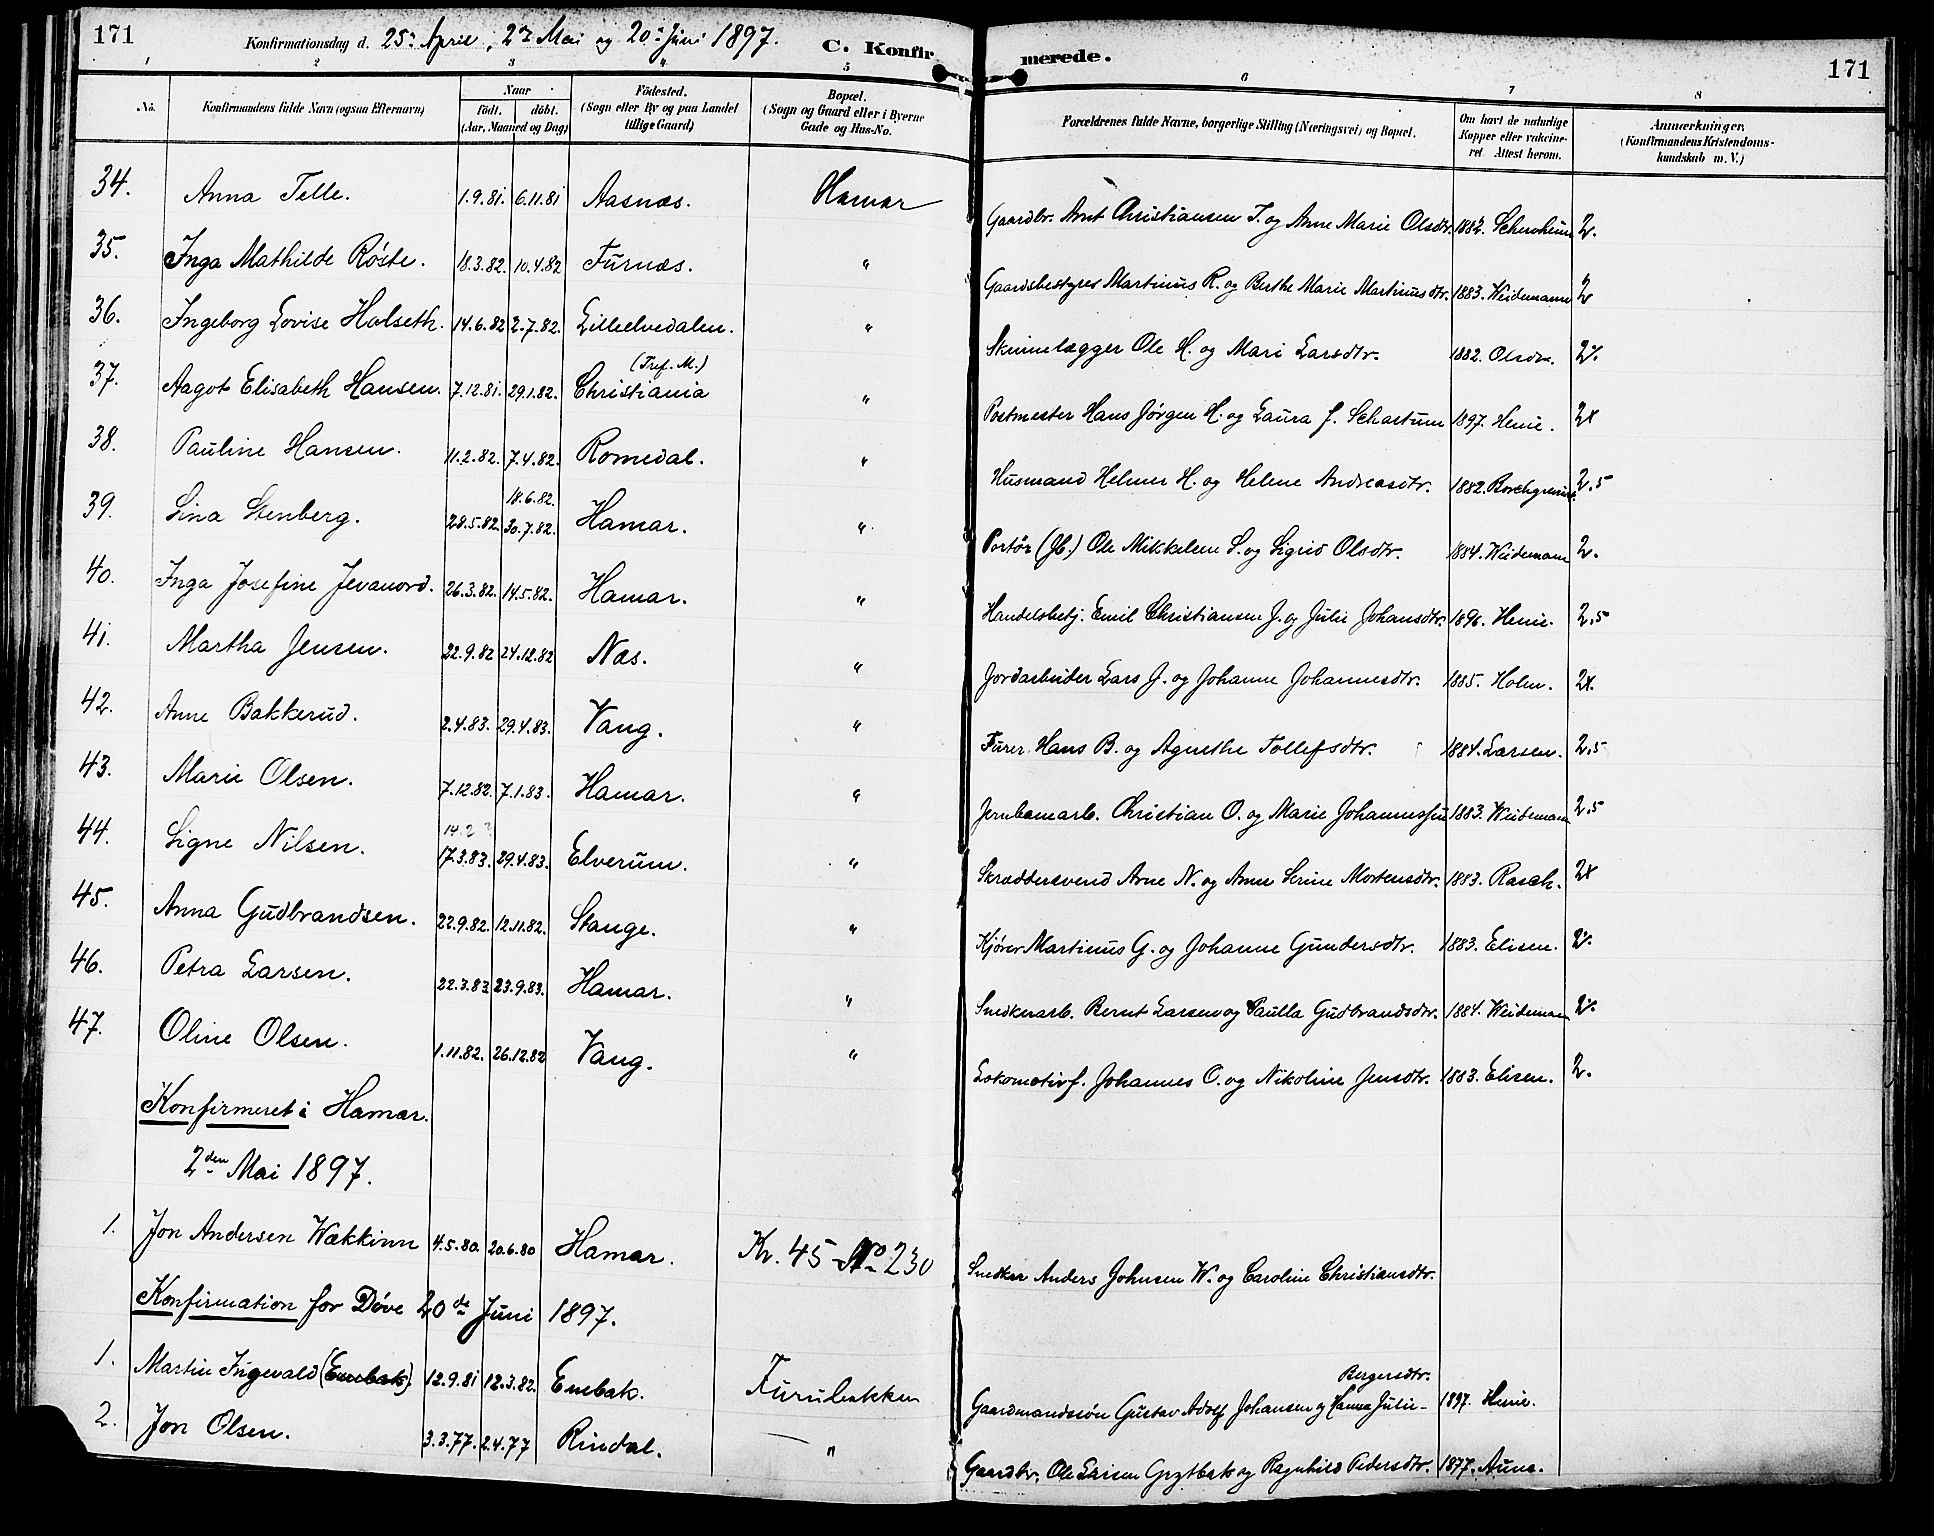 171 Konfirmationsdag d. 25de April, 2den Mai og 20de Juni 1897. C. Konfirmerede. 171
1 2 3 4 5 6 7 8
No. Konfirmandens fulde Navn (ogsaa Efternavn) Naar født. døbt. (Aar, Maaned og Dag) Fødested. (Sogn eller By og paa Landet tillige Gaard) Bopæl. (Sogn og Gaard eller i Byerne Gade og Hus-No. Forældrenes fulde Navne, borgerlige Stilling (Næringsvei) og Bopæl. Om havt de naturlige Kopper eller vakcineret. Attest herom. Anmærkninger. (Konfirmandens Kristendomskundskab m. V.)
34. Anna Telle. 1.9.81. 6.11.81 Aasnæs. Hamar Gaardbr. Arnt Christiansen T. og Anne Marie Olsdtr. 1882. 2.
35. Inga Mathilde Røste. 18.3.82. 10.4.82 Furnæs. " Gaardsbestyrer Martinus R. og Berthe Marie Martinusdtr. 1883. Weidemann 2
36. Ingeborg Lovise Halseth. 14.6.82 2.7.82. Lilleelvedalen. " Skinnelægger Ole H. og Mari Larsdtr. 1882. 2
37. Aagot Elisabeth Hansen. 7.12.81. 29.1.82. (Tref. M.) Christiania " Postmester Hans Jørgen H. og Laura J. Schartum 1897. Henie. 2x
38. Pauline Hansen. 11.2.82. 7.4.82. Romedal. " Husmand Helmer H. og Helene Andreasdtr. 1882. Borchgrevink 2,5
39. Lina Stenberg. 28.5.82. 18.6.82. 30.7.82. Hamar. " Portør (Jb.) Ole Mikkelsen S. og Sigrid Olsdtr. 1884. Weidemann 2.
40. Inga Josefine Jevanord. 26.3.82. 14.5.82. Hamar. " Handelsbetj. Emil Christiansen J. og Julie Johansdtr. 1896. Henie. 2,5
41. Martha Jensen. 22.9.82 24.12.82 Næs. " Jordarbeider Lars J. og Johanne Johannesdtr. 1885. Holm. 2x.
42. Anne Bakkerud. 2.4.83. 29.4.83. Vang. " Furer Hans B. og Agnethe Tollefsdtr. 1884. Larsen. 2,5
43. Marie Olsen. 7.12.82. 7.1.83. Hamar. " Jernbanearb. Christian O. og Marie Johannessen 1883. Weidemann 2,5
44. Signe Nilsen. 14.2 ? 17.3.83. 29.4.83. Elverum. " Skræddersvend Arne N. og Anne Serine Mortensdtr. 1883. Rasch. 2x
45. Anna Gudbrandsen. 22.9.82. 12.11.82. Stange. " Kjører Martinus G. og Johanne Gundersdtr. 1883. Elisen. 2
46. Petra Larsen. 22.7.83. 23.9.83. Hamar. " Snedkerarb. Bernt Larsen og Paulla Gudbrandsdtr. 1884. Weidemann 2
47. Oline Olsen. 1.11.82. 26.12.82 Vang. " Lokomotivf. Johannes O. og Nikoline Jensdtr. 1883. Elisen. 2.
Konfirmeret i Hamar.
2den Mai 1897.
1. Jon Andersen Wækkinn 4.5.80. 20.6.80 Hamar. Kv. 45 No 230 Snedker Anders Johnsen W. og Caroline Christiansdtr.
Konfirmation for Døve 20de Juni 1897.
1. Martin Ingevald (Embak). 12.9.81 12.3.82. Embak. Furubakken Gaardmandssøn Gustav Adolf Johansen og Hanna Julie Bergersdtr. 1897. Henie.
2. Jon Olsen. 3.3.77. 2.4.77 Rindal. " Gaardbr. Ole Larsen Grytbak og Ragnhild Pedersdtr. 1877. Aune.